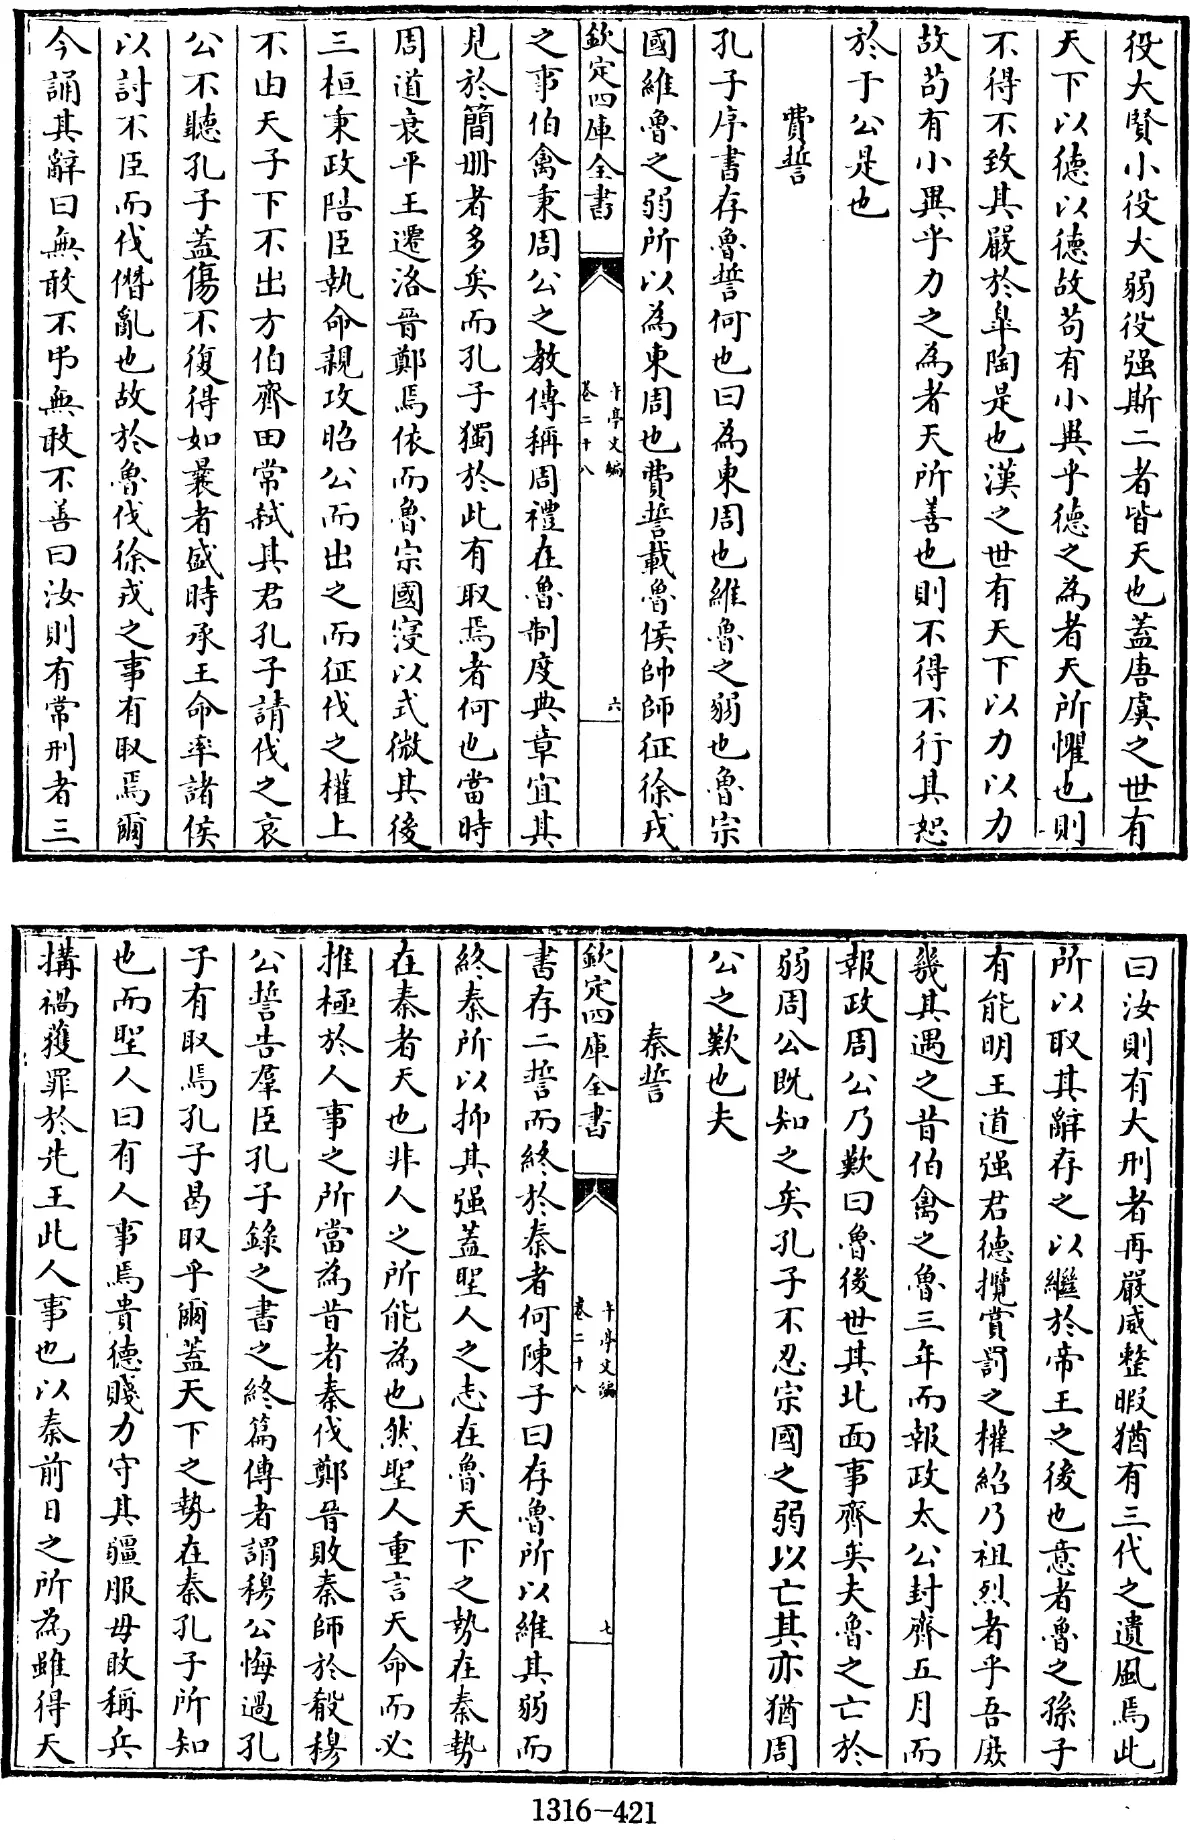 役大賢小役大弱役强斯二者皆天也蓋唐虞之世有
天下以德以德故苟有小異乎德之為者天所懼也則
不得不致其嚴於臯陶是也漢之世有天下以力以力
故苟有小異乎力之為者天所善也則不得不行其恕
於于公是也
費誓
孔子序書存魯誓何也曰為東周也維魯之弱也魯宗
國維魯之弱所以為東周也費誓載魯侯帥師征徐戎
欽定四庫全書
午亭文編
卷二十八
六
之事伯禽秉周公之教傳稱周禮在魯制度典章宜其
見於簡册者多矣而孔子獨於此有取焉者何也當時
周道衰平王遷洛晉鄭焉依而魯宗國寖以式微其後
三桓秉政陪臣執命親攻昭公而出之而征伐之權上
不由天子下不出方伯齊田常弑其君孔子請伐之哀
公不聽孔子蓋傷不復得如曩者盛時承王命率諸侯
以討不臣而伐僭亂也故於魯伐徐戎之事有取焉爾
今誦其辭曰無敢不弔無敢不善曰汝則有常刑者三
曰汝則有大刑者再嚴威整暇猶有三代之遺風焉此
所以取其辭存之以繼於帝王之後也意者魯之孫子
有能明王道强君德攬賞罰之權紹乃祖烈者乎吾庶
幾其遇之昔伯禽之魯三年而報政太公封齊五月而
報政周公乃歎曰魯後世其北面事齊矣夫魯之亡於
弱周公既知之矣孔子不忍宗國之弱以亡其亦猶周
公之歎也夫
秦誓
欽定四庫全書
午亭文編
卷二十八
七
書存二誓而終於秦者何陳子曰存魯所以維其弱而
終秦所以抑其强蓋聖人之志在魯天下之勢在秦勢
在秦者天也非人之所能為也然聖人重言天命而必
推極於人事之所當為昔者秦伐鄭晉敗秦師於殽穆
公誓告羣臣孔子錄之書之終篇傳者謂穆公悔過孔
子有取焉孔子曷取乎爾蓋天下之勢在秦孔子所知
也而聖人曰有人事焉貴德賤力守其疆服毋敢稱兵
搆禍獲罪於先王此人事也以秦前日之所為雖得天
1316-421